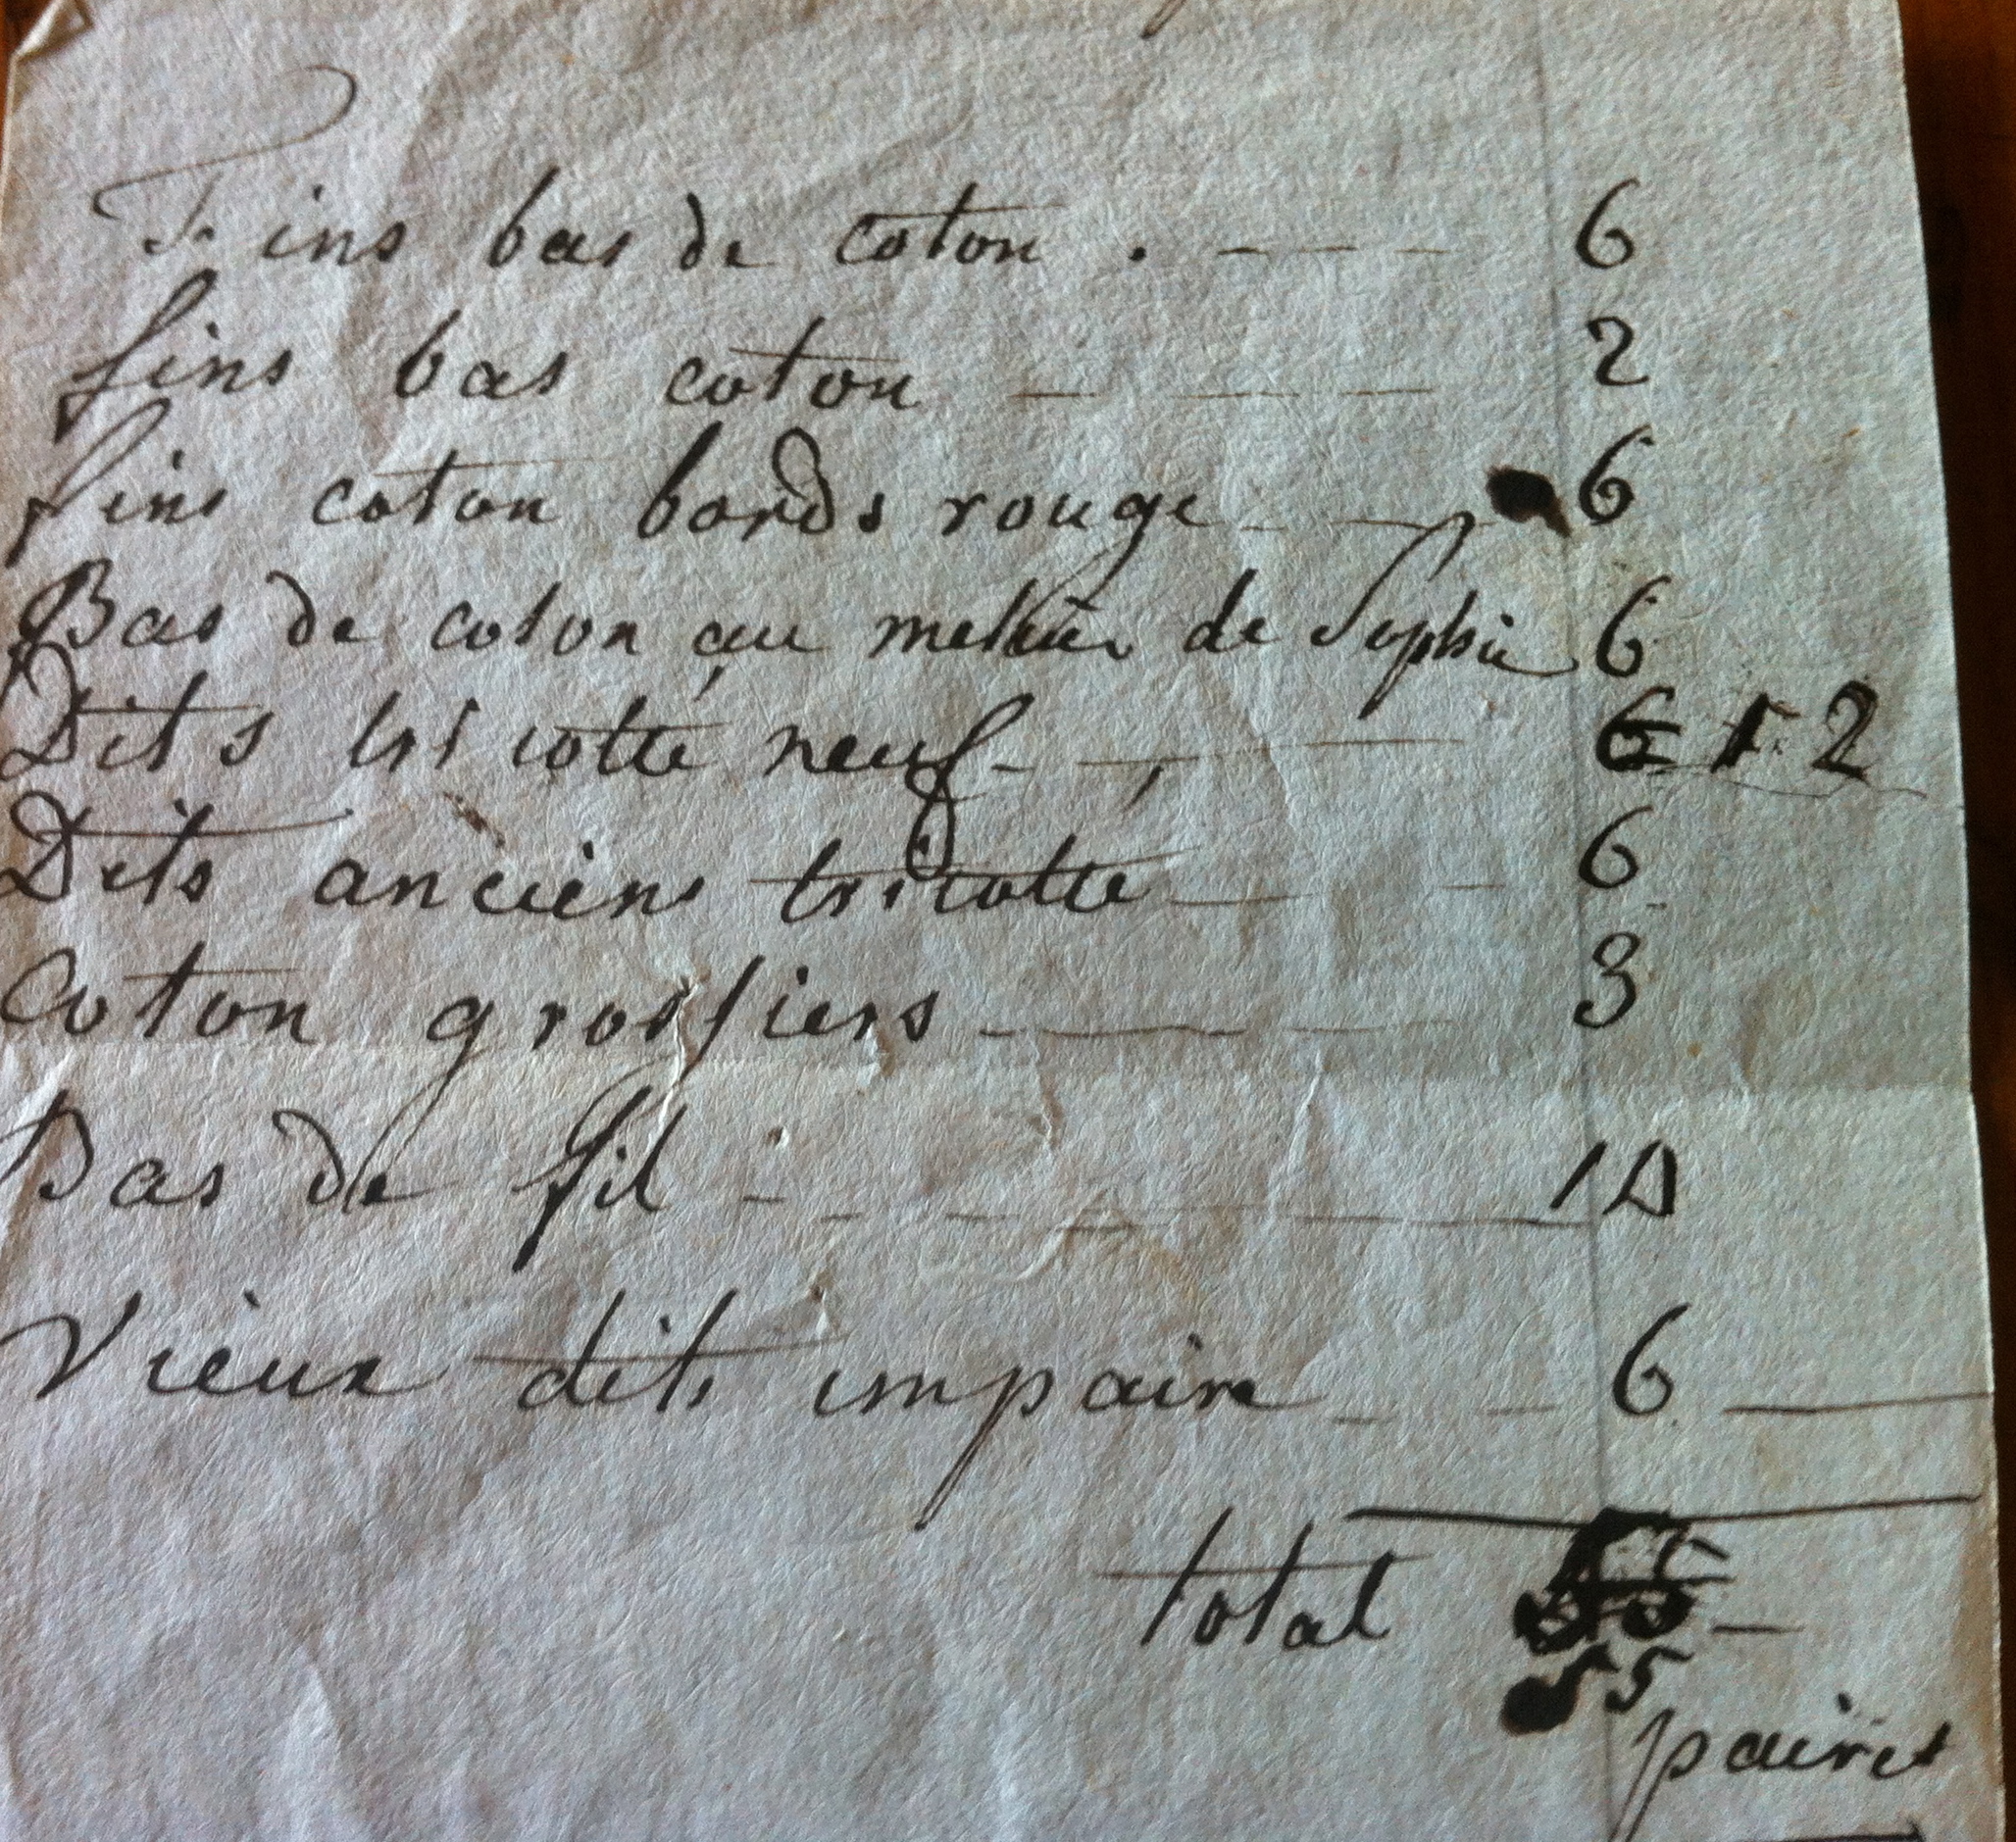 Fins bas de coton . - - - 6
fins bas coton - - - 2
fins coton bords rouge - - 6
Bas de coton au métier de Sophie 6
Dits tricotté neuf - - - 12
Dits anciens tricotté - - 6
Coton grossiers - - - 3
Bas de fil - - - 1
Vieux dits impaire - - 6
total
55
paires